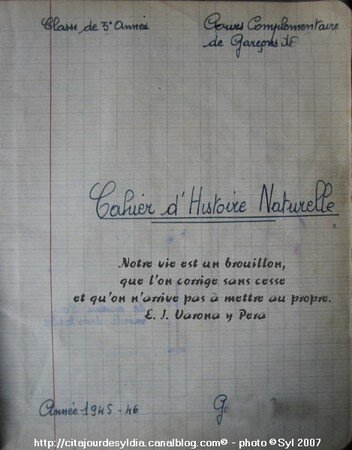 Classe de 3e Année
Cours Complémentaire
de Garçons
Cahier d'Histoire Naturelle
Notre vie est un brouillon,
que l'on corrige sans cesse
et qu'on n'arrive pas à mettre au propre.
E. J. Varona y Pera
Année 1945-46
http://citajourdesyldia.canalblog.com© - photo ©Syl 2007